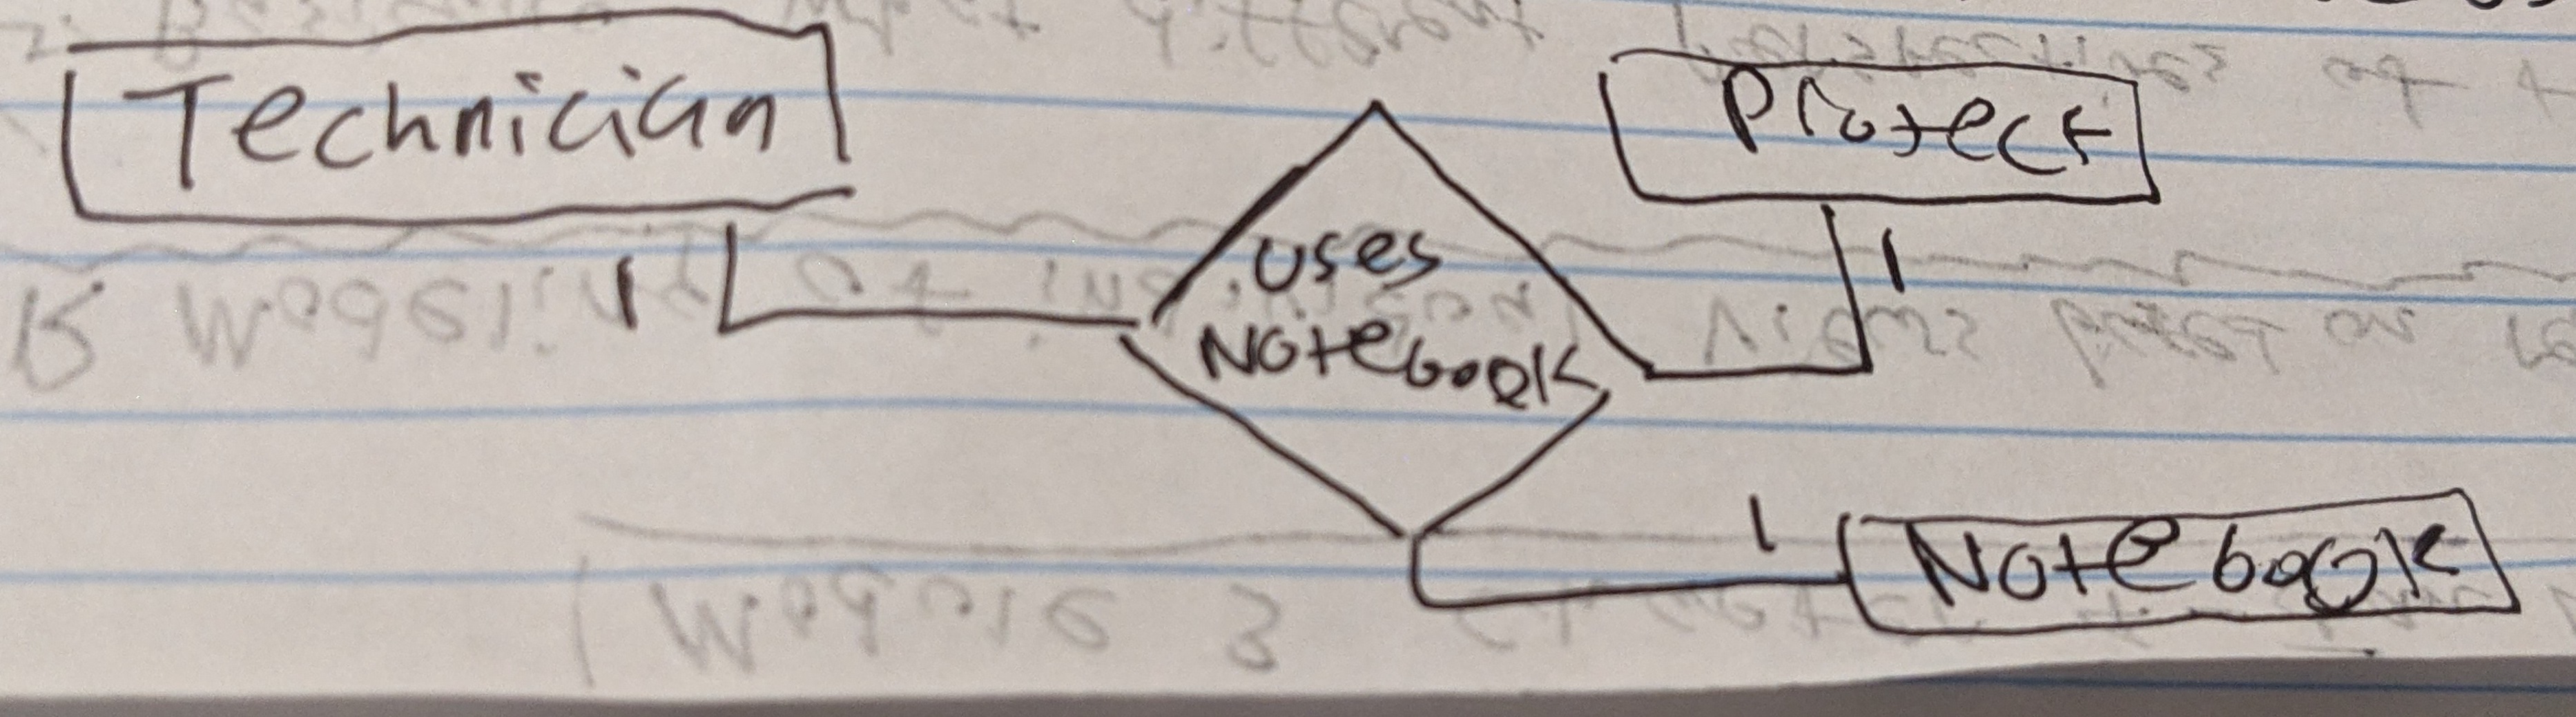 Technician
Project
uses
Notebook
1
1
1
Notebook